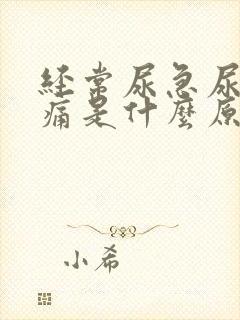 经常尿急尿
痛是什麼原
小希